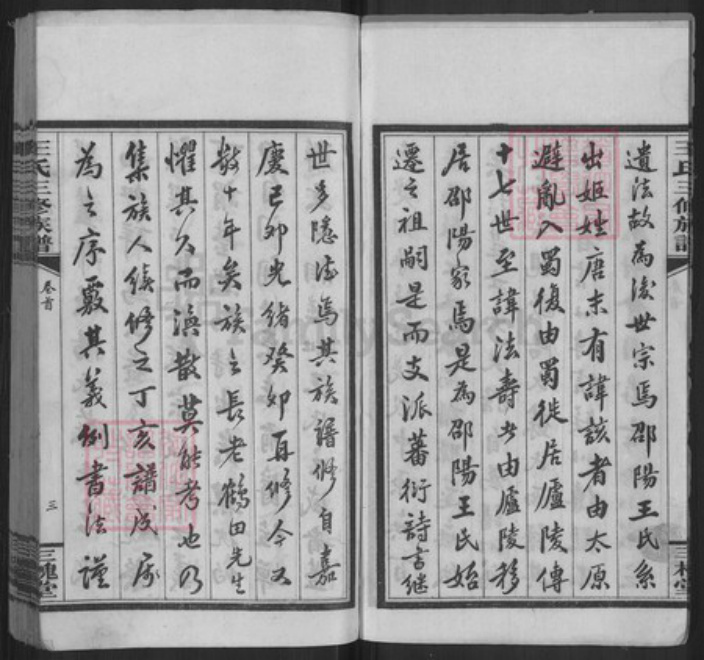 遺法故為後世宗焉邵陽王氏系
出姬姓唐末有諱該者由太原
避亂入蜀復由蜀徙居廬陵傳
十七世至諱法壽者由廬陵移
居邵陽家焉是為邵陽王氏始
遷之祖嗣是而支派蕃衍詩書繼
世多隱德焉其族譜修自嘉
慶己卯光緒癸卯再修今又
數十年矣族之長老鶴田先生
懼其久而渙散莫能考也乃
集族人續修之丁亥譜成屬
為之序覈其義例書法謹
王氏三修族譜
卷首
三
三槐堂
FamilySearch